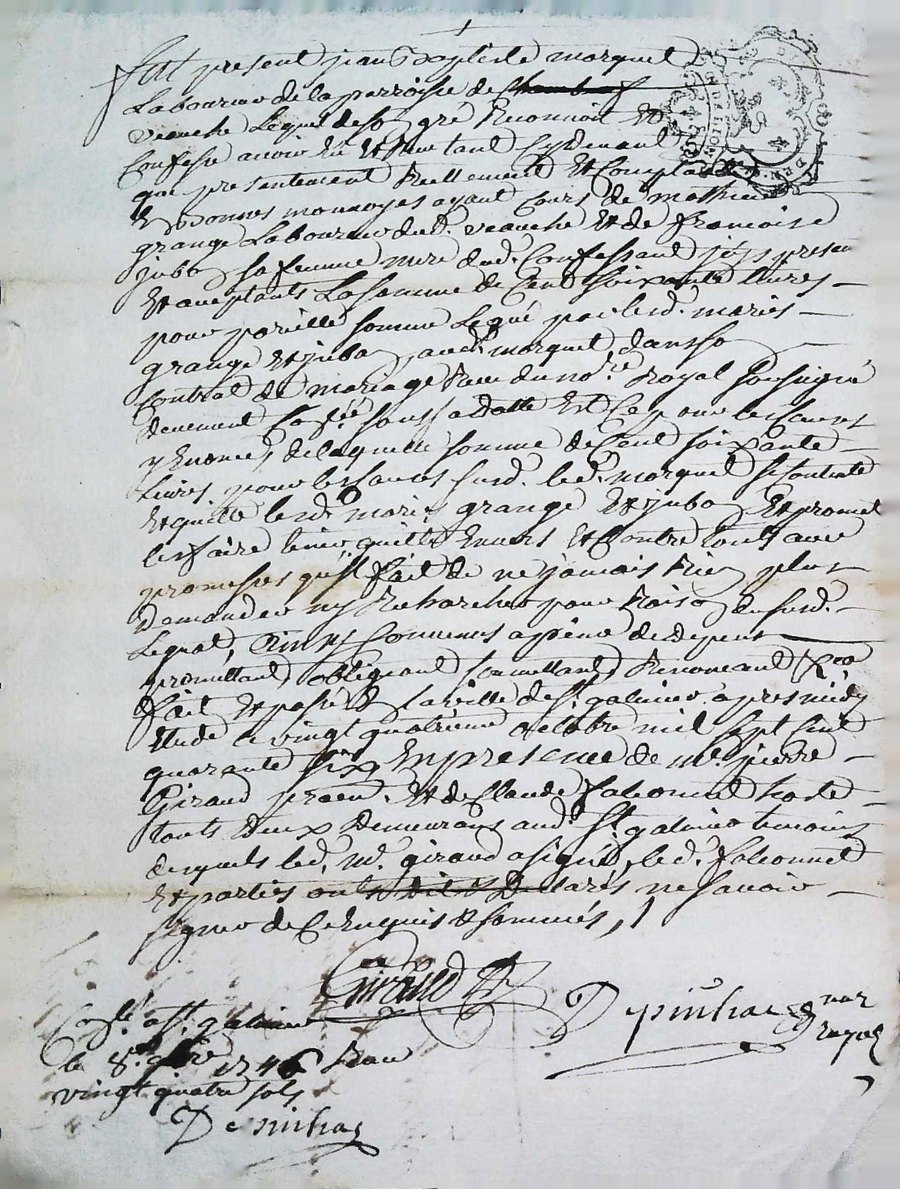 fut present jean Baptiste morguet
Laboureur de la parroisse de
veauche Lequel de son gré Reconnoit Et
Confesse avoir Eu Et Reçu tant Cydevant
que presentement Reellement Et Comptant
En bonnes monnoyes ayant Cours de mathieu
grange Laboureur dud. veauche Et de francoise
juba sa femme mere dud. Confessant icy presents
Et acceptants La somme de Cent soixante livres
pour pareille somme Legué par lesd. mariés
grange Et juba aud. morguet dans son
Contrat de mariage Reçu du no.re Royal soussigné
deuement Con.lé sous sa datte Et Ce pour les Causes
y Enoncés de laquelle somme de Cent soixante
Livres pour les causes susd. led. morguet se Contente
Et quitte lesd. mariés grange Et juba Et promet
les faire tenir quitte Envers Et Contre touts avec
promesses qu'il fait de ne jamais Rien plus
Demander ny Rechercher pour Raison du susd.
Legat, Ainsy Convenus a peine de depens
promettant obligeant soumettant Renonceant &ca
fait Et passé En la ville de st. galmier apres midy
Etude le vingt quatrieme octobre mil sept Cent
quarante six En presence de me pierre
Giraud Et de Claude falconnet hoste
touts Deux Demeurans aud. st. galmier temoins
desquels led. me. giraud a signé, led. falconnet
Et parties ont declarés ne savoir
signer de Ce Enquis & sommés
Giraud
Depinhac no.re
royal
Con.lé a st. galmier
le 8e 9bre 1746 Reçu
vingt quatre sols
Depinhac